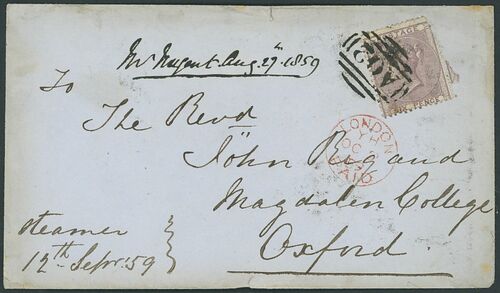 Mr Nugent Aug. 29th 1859
POSTAGE
SIX PENCE
A02
To
The Revd
LONDON
OC
PAID
John Rigaud
Magdalen College
Oxford.
steamer
12th Sepr. 59